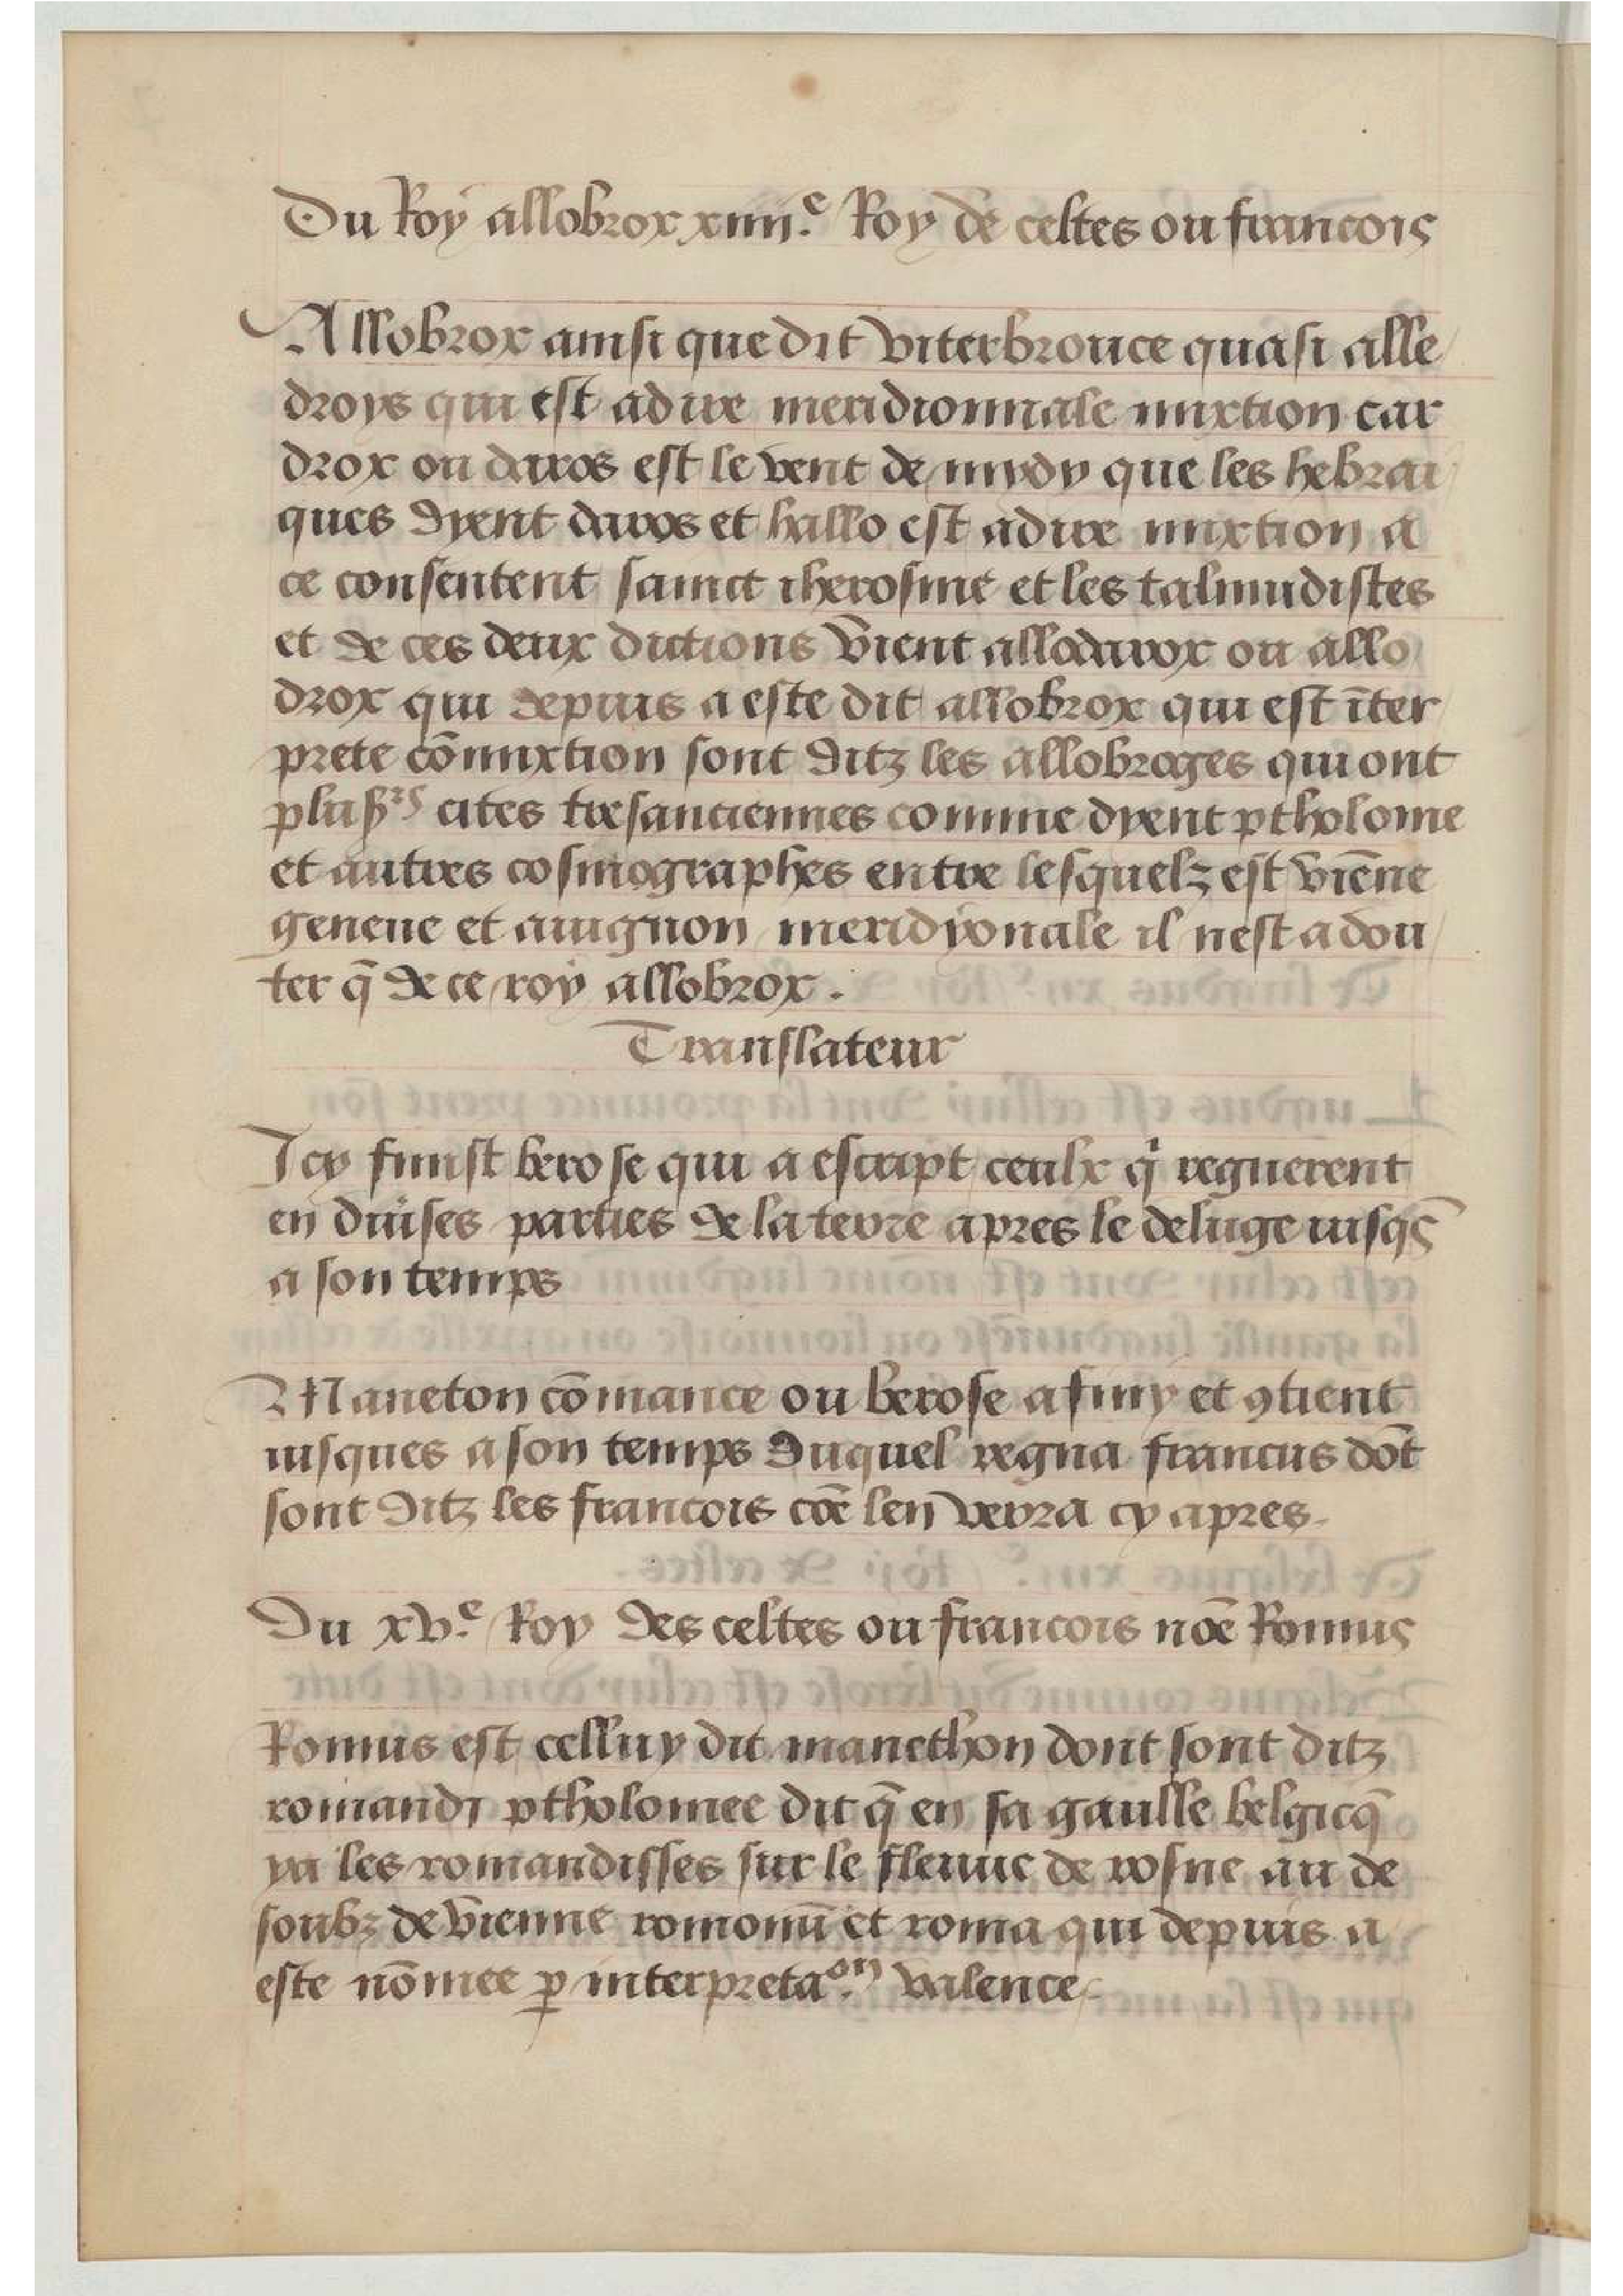 Du Roy allobrox xiiii.e Roy de celtes ou francois
Allobrox ainsi que dit viterbronce quasi alle
droys qui est adire meridionnale mixtion car
drox ou daros est le vent de mydy que les hebrai
ques dyent daros et hallo est adire mixtion a
ce consentent sainct iherosme et les talmudistes
et de ces deux dictions vient allodarox ou allo
drox qui depuis a este dit allobrox qui est īter
prete cōmixtion sont ditz les allobroges qui ont
plusrs cites tresanciennes comme dyent ptholome
et autres cosmographes entre lesquelz est viēne
geneue et auignon meridyonale il nest a dou
ter q̄ de ce roy allobrox .
Translateur
Icy finist berose qui a escript ceulx q̇ regnerent
en diuses parties de la terre apres le deluge iusqs̄
a son temps
Maneton cōmance ou berose a finy et ꝯtient
iusques a son temps duquel regna francus dōt
sont ditz les francois cōe len verra cy apres
Du xv.e Roy des celtes ou francois nōe Romus
Romus est celluy dit manethon dont sont ditz
romandi ptholomee dit q̄ en sa gaulle belgicq̄
ya les romandisses sur le fleuue de rosne au de
soubz de vienne romonū et roma qui depuis a
este nōmee ꝑ interpretaon. valence